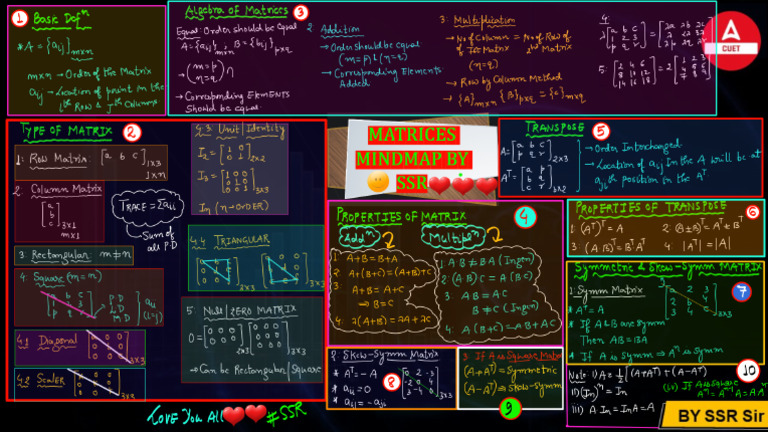 1 Basic Defⁿ
* A = {aij}m×n
m×n → Order of the Matrix
aij → Location of point in the
ith Row & Jth Column.
Algebra of Matrices 3
Equal: Order should be Equal
A = {aij}m×n, B = {bij}p×q
→ (m = p)
(n = q)
→ Corresponding Elements
should be equal.
2 Addition
→ Order should be equal
(m = p) & (n = q)
→ Corresponding Elements
Added
3: Multiplication
→ No of Column = No of Row of
of 1st Matrix 2nd Matrix
(n = q)
→ Row by Column Method
→ {A}m×n {B}p×q = {C}m×q
4:
5:
Adda247
CUET
TYPE OF MATRIX 2
1: Row Matrix: [a b c]1×3
1×n
2. Column Matrix
[a
b
c]3×1
m×1
3 Rectangular: m≠n
4. Square (m=n)
P.D
M.D
4.1 Diagonal
3×3
4.2 Scaler
3×3
TRACE = Σaii
→ Sum of
all P.D
4.3 Unit/Identity
I2 = [1 0
0 1]2×2
I3 = [1 0 0
0 1 0
0 0 1]3×3
In (n → ORDER)
4.4 TRIANGULAR
3×3
5 Null/ZERO MATRIX
0 = [0 0 0
0 0 0]2×3 [0 0 0
0 0 0
0 0 0]3×3
→ Can be Rectangular/Square
MATRICES
MINDMAP BY
SSR
TRANSPOSE 5
A = [a b c
p q r]2×3
Aᵀ = [a p
b q
c r]3×2
→ Order Interchanged
→ Location of aij in the A will be at
aji th position in the Aᵀ
PROPERTIES OF MATRIX 4
Addⁿ
1 A+B = B+A
2 A+(B+C) = (A+B)+C
3 A+B = A+C
⇒ B = C
4. λ(A+B) = λA+λB
Multipⁿ
1 AB ≠ BA (Ingen)
2 (AB)C = A(BC)
3 AB = AC
B ≠ C (Ingen)
4 A(B+C) = AB+AC
PROPERTIES OF TRANSPOSE 6
1 (Aᵀ)ᵀ = A
2: (A±B)ᵀ = Aᵀ±Bᵀ
3 (AB)ᵀ = BᵀAᵀ
4: |Aᵀ| = |A|
Symmetric & Skew-Symm MATRIX
7
1: Symm Matrix
* Aᵀ = A
* If A & B are Symm
Then AB = BA
* If A is Symm ⇒ Aⁿ is Symm
2 Skew-Symm Matrix
* Aᵀ = -A
* aii = 0
* aij = -aji
8
3: If A is Square Matrix
(A+Aᵀ) = Symmetric
(A-Aᵀ) ⇒ Skew-Symm
9
10
Note: i) A = 1/2 [(A+Aᵀ) + (A-Aᵀ)]
ii) (In)ⁿ = In
iii) A·In = In·A = A
(iv) If A is Square
Love You All #SSR
BY SSR Sir